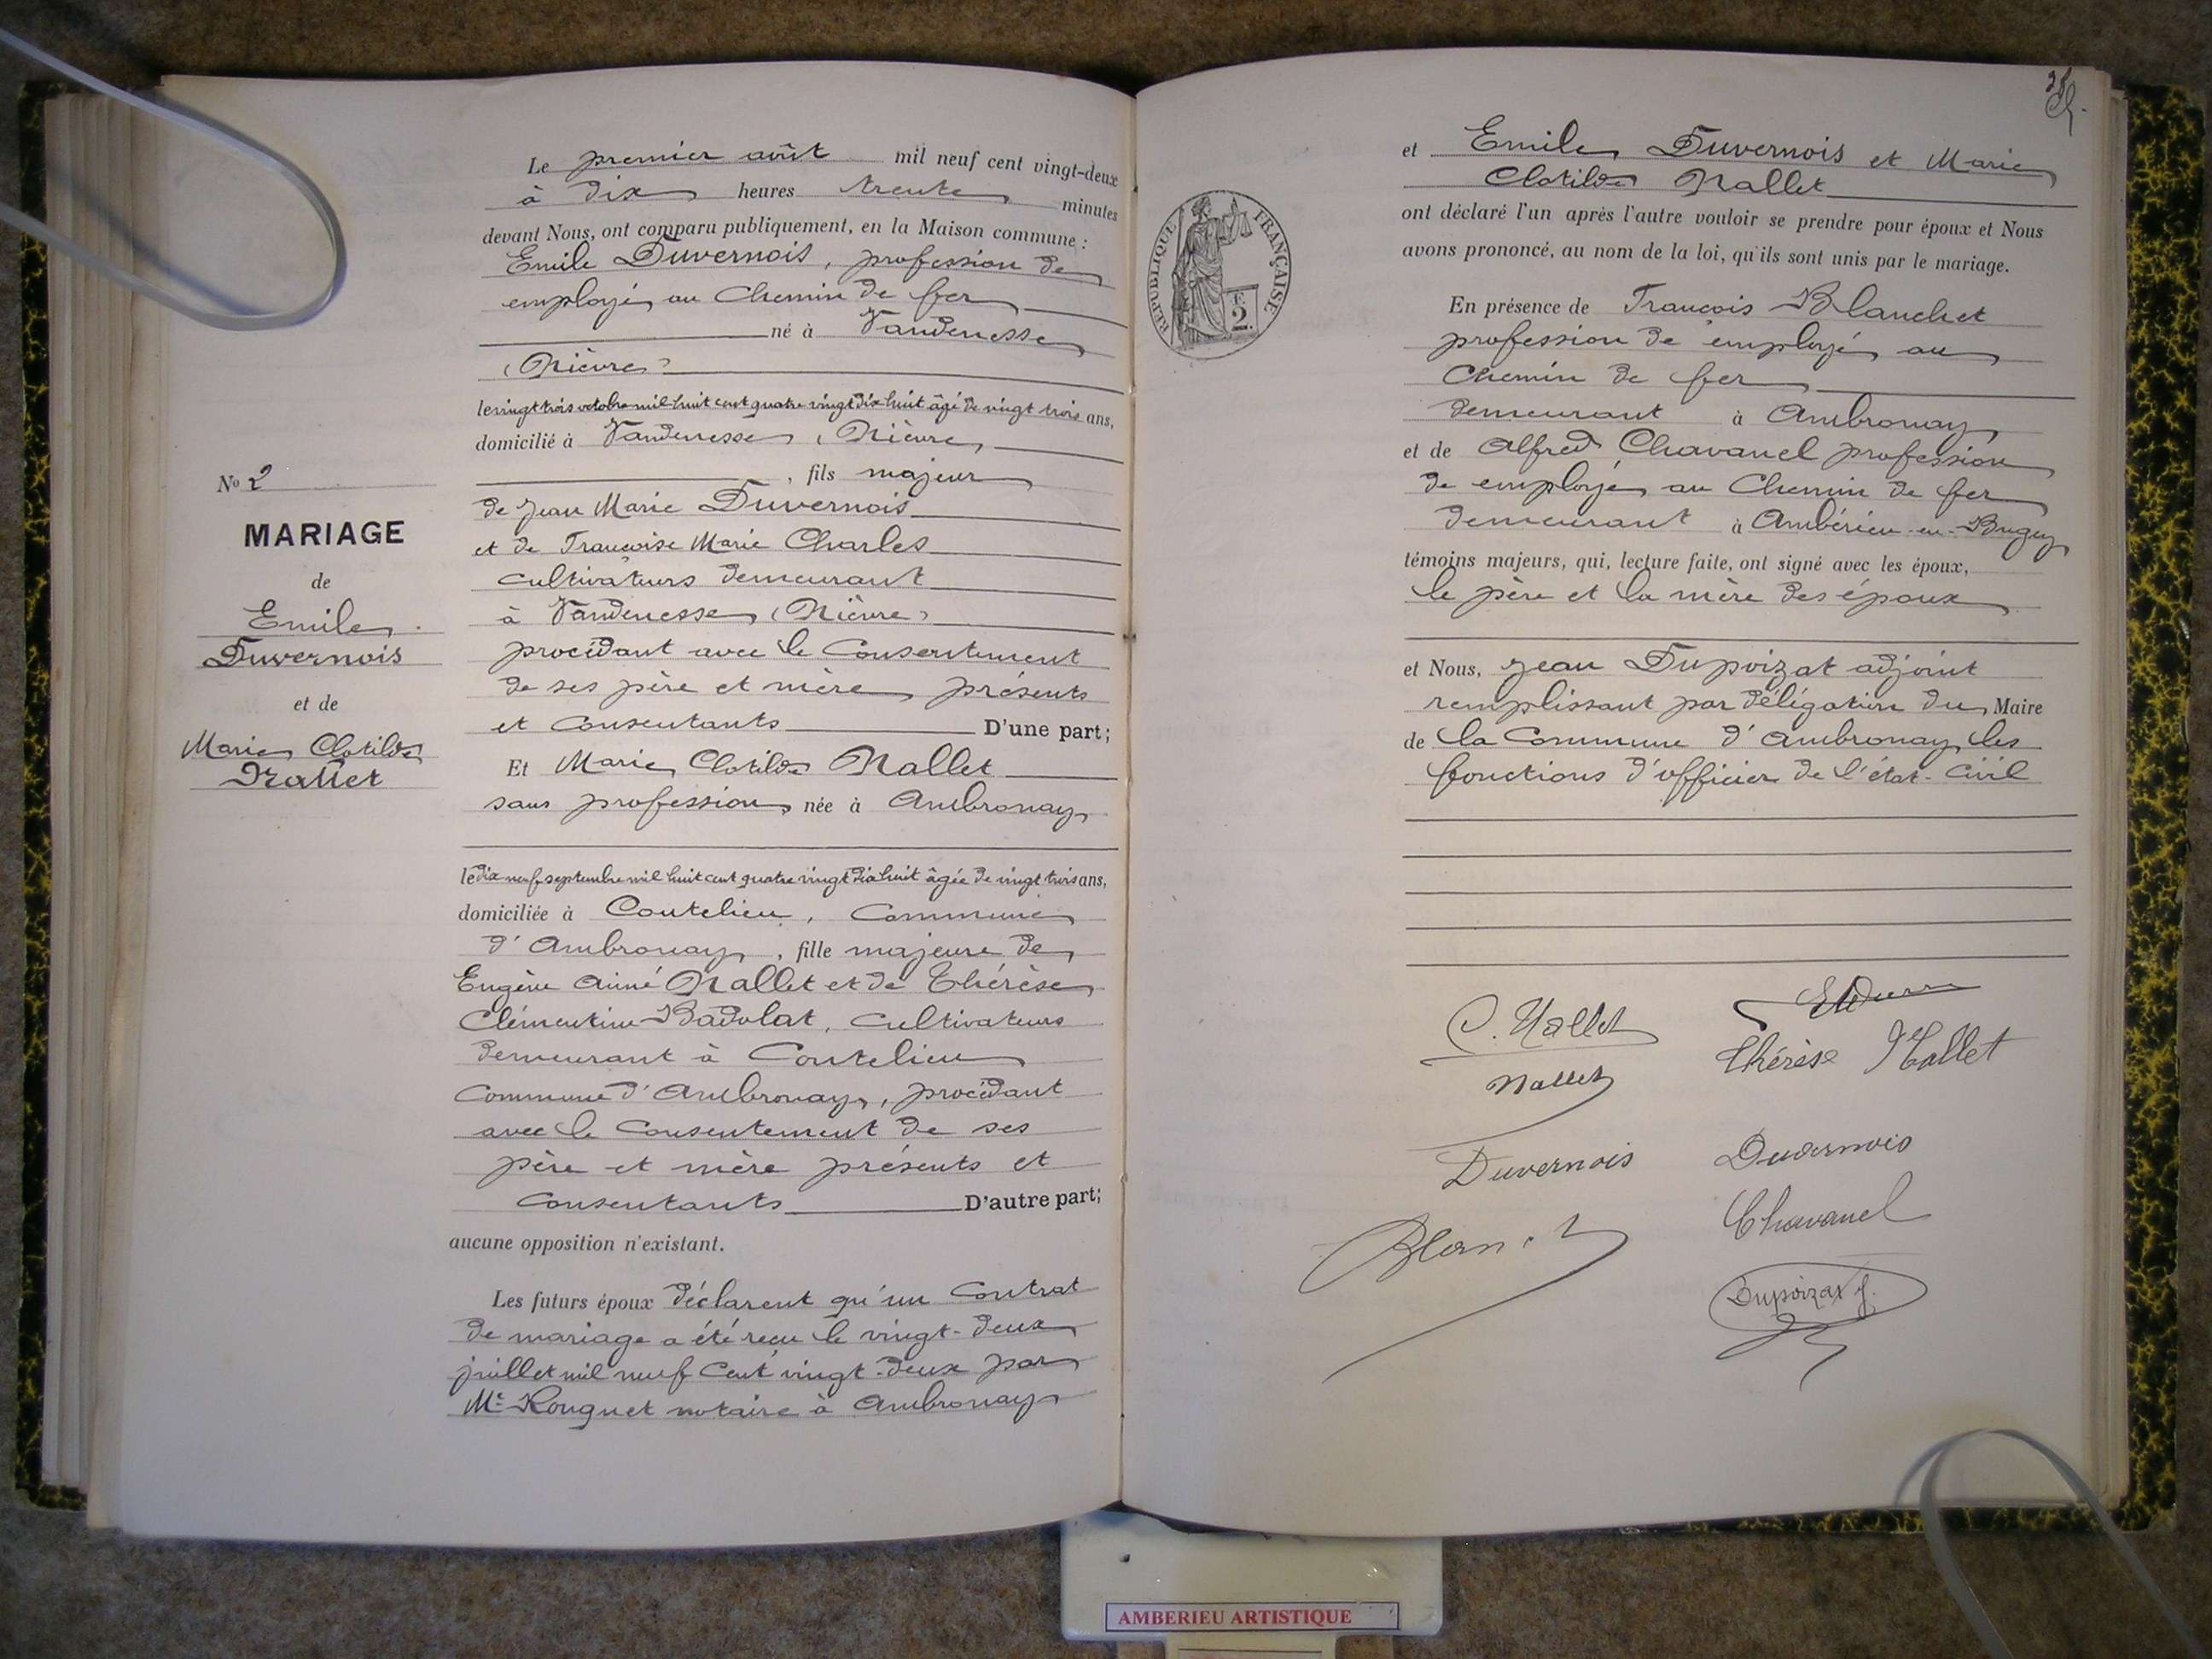 Le premier août mil neuf cent vingt-deux
à dix heures trente minutes
devant Nous, ont comparu publiquement, en la Maison commune :
Emile Duvernois, profession de
employé au Chemin de fer
né à Vandenesse
(Nièvre)
le vingt trois octobre mil huit cent quatre vingt dix huit âgé de vingt trois ans,
domicilié à Vandenesse (Nièvre)
, fils majeur
de Jean Marie Duvernois
et de Françoise Marie Charles
cultivateurs demeurant
à Vandenesse (Nièvre)
procédant avec le Consentement
de ses père et mère présents
et Consentants D'une part;
Et Marie Clotilde Nallet
sans profession, née à Ambronay
le dix neuf septembre mil huit cent quatre vingt dix huit âgée de vingt trois ans,
domiciliée à Coutelieu, Commune
d'Ambronay, fille majeure de
Eugène Aimé Nallet et de Thérèse
Clémentine Badolat, cultivateurs
demeurant à Coutelieu
Commune d'Ambronay, procédant
avec le Consentement de ses
père et mère présents et
Consentants D'autre part;
aucune opposition n'existant.
Les futurs époux déclarent qu'un Contrat
de mariage a été reçu le vingt-deux
juillet mil neuf Cent vingt-deux par
Me Rouguet notaire à Ambronay
No 2
MARIAGE
de
Emile
Duvernois
et de
Marie Clotilde
Nallet
et Emile Duvernois et Marie
Clotilde Nallet
ont déclaré l'un après l'autre vouloir se prendre pour époux et Nous
avons prononcé, au nom de la loi, qu'ils sont unis par le mariage.
En présence de François Blanchet
profession de employé au
Chemin de fer
demeurant à Ambronay
et de Alfred Chavanel profession
de employé au Chemin de fer
demeurant à Ambérieu-en-Bugey
témoins majeurs, qui, lecture faite, ont signé avec les époux,
le père et la mère des époux
et Nous, Jean Dupoizat adjoint
remplissant par délégation du Maire
de la Commune d'Ambronay les
fonctions d'officier de l'état-Civil
RÉPUBLIQUE FRANÇAISE
2
C. Nallet
Thérèse Nallet
Nallet
Duvernois Duvernois
Chavanel
Dupoizat J.
AMBERIEU ARTISTIQUE